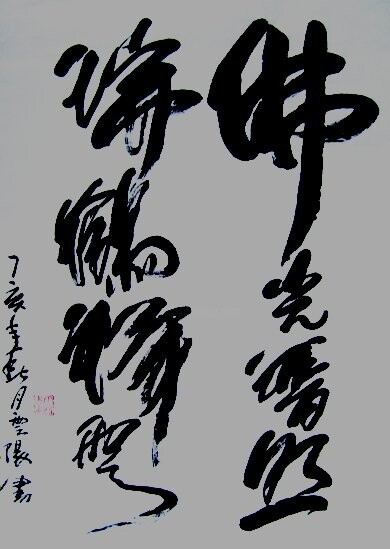 佛光普照
瑞鶴祥雲
丁亥年秋月雲書